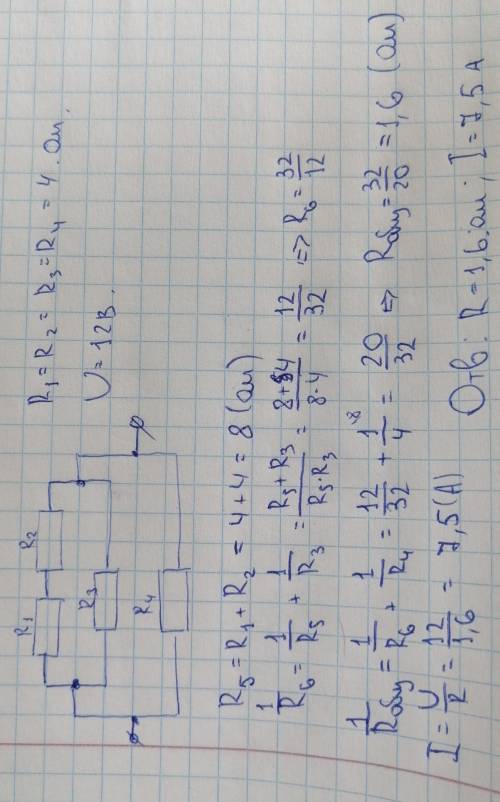 R₁ R₂
R₃
R₄
R₁ = R₂ = R₃ = R₄ = 4 Ом.
U = 12В.
R₅ = R₁ + R₂ = 4 + 4 = 8 (Ом)
1/R₆ = 1/R₅ + 1/R₃ = (R₅ + R₃)/(R₅ · R₃) = (8 + 4)/(8 · 4) = 12/32 => R₆ = 32/12
1/Rобщ = 1/R₆ + 1/R₄ = 12/32 + 1/4 \8 = 20/32 => Rобщ = 32/20 = 1,6 (Ом)
I = U/R = 12/1,6 = 7,5 (А)
Отв: R = 1,6 Ом; I = 7,5 А